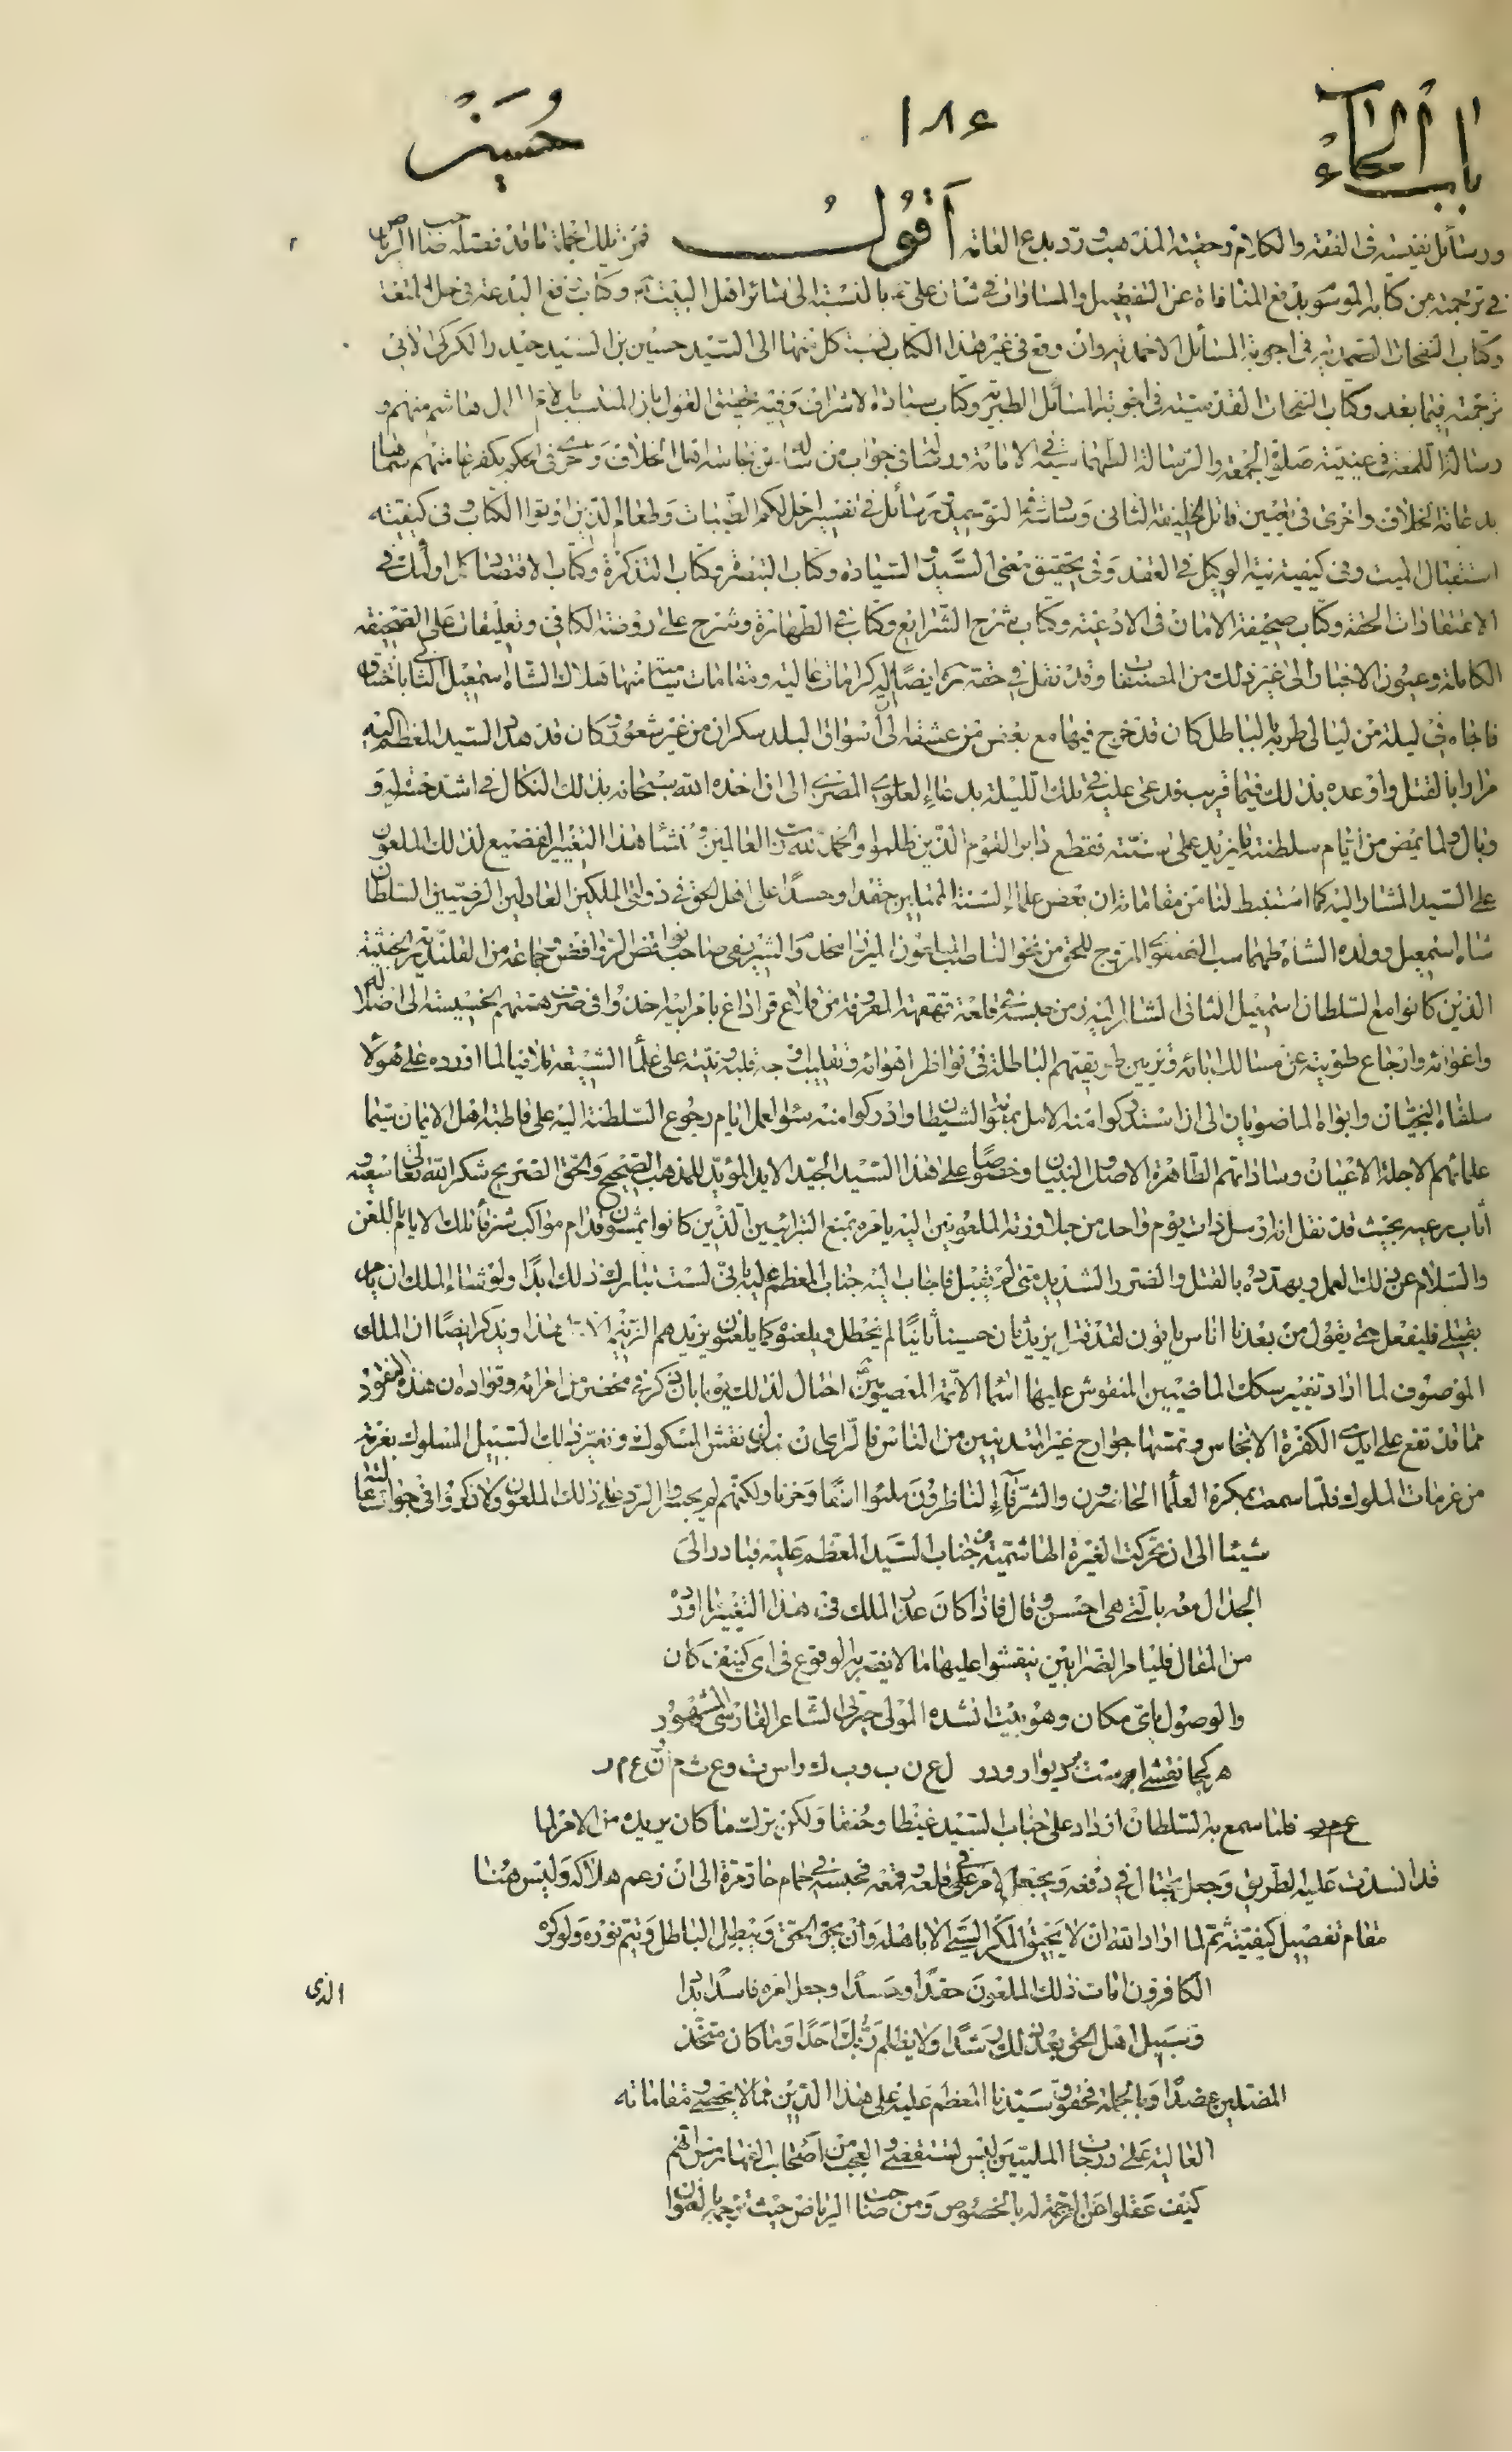 باب الحاء ١٨٤ حسين
ورسائل نفيسة في الفقه والكلام وحقية المذهب ورد بدع العامة اقول فمن تلك الجملة ما قد فصله صاحب الرياض
في ترجمته من كتابه الموسوم بدفع المناواة عن التفضيل والمساواة في شأن علي ع بالنسبة الى سائر اهل البيت ع وكتاب رفع البدعة في حل المتعة
وكتاب النفحات الصمدية في اجوبة المسائل الاحمدية وان وقع في غير هذا الكتاب نسبة كل منها الى السيد حسين بن السيد حيدر الكركي الآتي
ترجمته فيما بعد وكتاب النفحات القدسية في اجوبة المسائل الطبرية وكتاب سيادة الاشراف وفيه تحقيق القول بان المنتسب بالام الى هاشم منهم و
رسالة اللمعة في عينية صلوة الجمعة والرسالة الطهماسبية في الامامة ورسالة في جواب من سأله عن نجاسة اهل الخلاف واخرى في الحكم بكفر عامتهم سماها
بدعامة الخلاف واخرى في تعيين قاتل الخليفة الثاني ورسالة في التوحيد ورسائل في تفسير احل لكم الطيبات وطعام الذين اوتوا الكتاب وفي كيفية
استقبال الميت وفي كيفية نية الوكيل في العقد وفي تحقيق معنى السيد والسيادة وكتاب التبصرة وكتاب التذكرة وكتاب الاقتصاد كل اولئك في
الاعتقادات الحقة وكتاب صحيفة الامان في الادعية وكتاب في شرح الشرايع وكتاب في الطهارة وشرح على روضة الكافي وتعليقات على الصحيفة
الكاملة وعيون الاخبار الى غير ذلك من المصنفات وقد نقل في حقه ره ايضا كرامات عالية ومقامات منها هلاك الشاه اسمعيل الثاني
فاجأه في ليلة من ليالي طربه الباطل كان قد خرج فيها مع بعض من عشقه الى اسواق البلد سكران من غير شعور وكان قد هدد السيد المعظم اليه
مرارا بالقتل واوعده بذلك فيما قريب فدعى عليه في تلك الليلة بدعاء العلوي المصري الى ان اخذه الله سبحانه بذلك النكال في اشد
وبال ولما يمض من ايام سلطنته ما يزيد على سنة فقطع دابر القوم الذين ظلموا والحمد لله رب العالمين ومنشأ هذا التغيير الفضيع لذلك الملعون
على السيد المشار اليه كما استنبط لنا من مقاماته ان بعض علماء السنة حقدا وحسدا على اهل الحق في دولتي الملكين العادلين الرضيين السلطان
شاه اسمعيل وولده الشاه طهماسب الصفوي المروج للحق من نحو الناصب الملعون الميرزا مخدوم الشريفي صاحب نواقض الروافض وجماعة من القلندرية الخبيثة
الذين كانوا مع السلطان اسمعيل الثاني المشار اليه زمن حبسه في قلعة قهقهة المعروفة من قلاع قراداغ باذربيجان اخذوا في صرف همتهم الخسيسة الى اضلاله
واغوائه وارجاع طويته عن مسالك ابائه وتزيين طريقتهم الباطلة في نواظر اهوائه وتقليب وجه قلبه ونيته على علماء الشيعة تلافيا لما اورده على هؤلاء
سلفاه النجيبان وابواه الماضويان الى ان استدركوا منه الامل بمنوى الشيطان وادركوا منه سؤالعمل ايام رجوع السلطنة اليه على قاطبة اهل الايمان سيما
علمائهم الاجلة الاعيان وساداتهم الطاهرة الاصل والبنيان وخصوصا على هذا السيد الجيد الايد المؤيد للمذهب الصحيح والحق الصريح شكر الله تعالى سعيه و
اثابه رعيه بحيث قد نقل انه ارسل ذات يوم واحد من جلاوزته الملعونين اليه يامره بمنع التبرائيين الذين كانوا يمشون قدام مواكب شرفاء تلك الايام باللعن
والسلام عن ذلك العمل ويهدده بالقتل والضرر الشديد متى لم يقبل فاجاب اليه جناب المعظم عليه باني لست بتارك ذلك ابدا ولو شاء الملك ان يامر
بقتلي فليفعل حتى يقول من بعدنا اناس ياتون لقد قتل يزيد ثان حسينا ثانيا ويلعنوه كما يلعنون يزيدهم هذا ويذكر ايضا ان الملك
الموصوف لما اراد تغيير سكك الماضيين المنقوش عليها اسماء الائمة المعصومين احتال لذلك يوما بان ذكر في محضر من امرائه وقواده ان هذه النقود
مما قد تقع على ايدي الكفرة الانجاس وتمسها جوارح غير المتدينين من الناس فالراي ان نبدل نقش المسكوك ونغير ذلك السبيل المسلوك بغرة
من غرمات الملوك فلما سمعت بمكره العلماء الحاضرون والشرفاء الناظرون ملئوا اسفا وحزنا ولكنهم لم يجسروا الرد على ذلك الملعون ولا ذكروا في جوابه
شيئا الى ان تحركت الغيرة الهاشمية من جناب السيد المعظم عليه فبادر الى
الجدال معه بالتي هي احسن وقال فاذا كان عذر الملك في هذا التغيير ما اورد
من المقال فليامر الضرابين ينقشوا عليها ما لا يضر به الوقوع في اي كنيف كان
والوصول باي مكان وهو بيت انشده المولى حيرتي الشاعر الفارسي المشهور
هر كجا نقشي بر ديوار ودر ل ع ن ب و ب ك ر است و ع ث م ا ن ع م ر
فلما سمع به السلطان ازداد على جناب السيد غيظا وحنقا ولكن ترك ما كان يريده من الامر لما
قد انسدت عليه الطريق وجعل يحتال في دفعه ويجتعل الامر على قلعه وقمعه فحبسه في حمام حار مرة الى ان زعم هلاكه وليس هنا
مقام تفصيل كيفيته ثم لما اراد الله ان لا يحيق المكر السيئ الا باهله وان يحق الحق ويبطل الباطل ويتم نوره ولو كره
الكافرون امات ذلك الملعون حقدا وحسدا وجعل امره فاسدا بددا
وسبيل اهل الحق بعد ذلك رشدا ولا يظلم ربك احدا وما كان متخذ
المضلين عضدا وبالجملة فحقوق سيدنا المعظم عليه على هذا الدين مما لا يحصى ومقاماته
العالية على درجات المليين ليس تستقصى والعجب من اصحاب الفهارس انهم
كيف غفلوا عن الترجمة له بالخصوص ومن صاحب الرياض حيث ترجمه بالعنوان
الذي